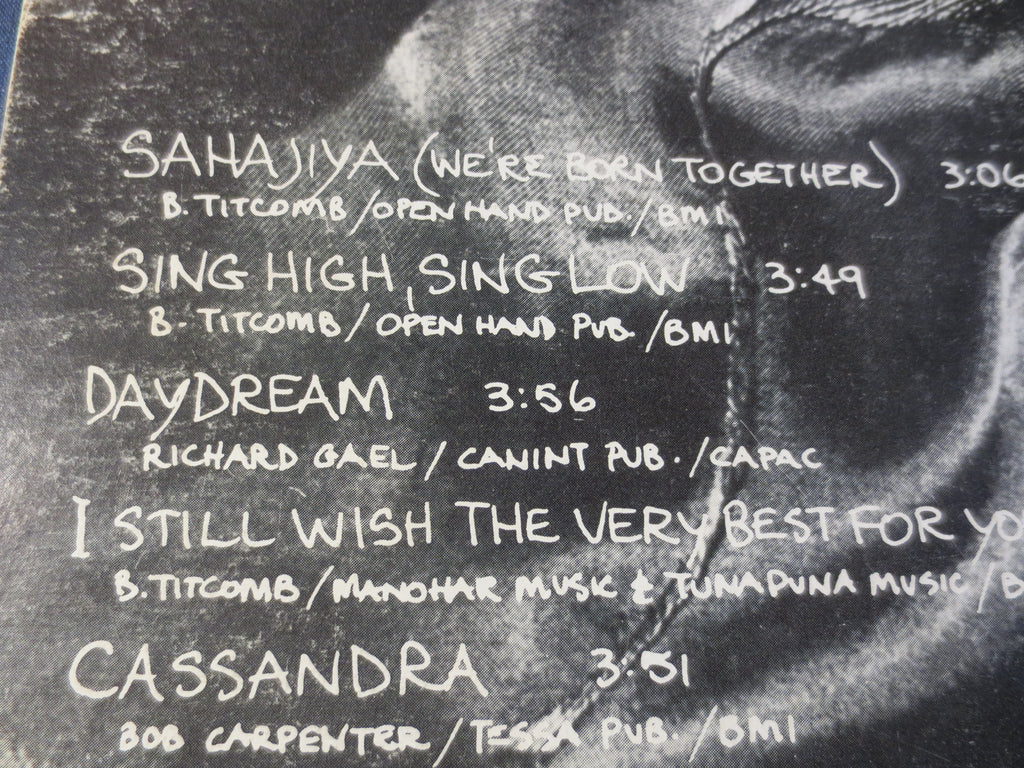 SAHAJIYA (WE'RE BORN TOGETHER) 3:06
B. TITCOMB/OPEN HAND PUB./BMI
SING HIGH, SING LOW 3:49
B. TITCOMB/OPEN HAND PUB./BMI
DAYDREAM 3:56
RICHARD GAEL/CANINT PUB./CAPAC
I STILL WISH THE VERY BEST FOR YO
B. TITCOMB/MANOHAR MUSIC & TUNAPUNA MUSIC/B
CASSANDRA 3:51
BOB CARPENTER/TESSA PUB./BMI